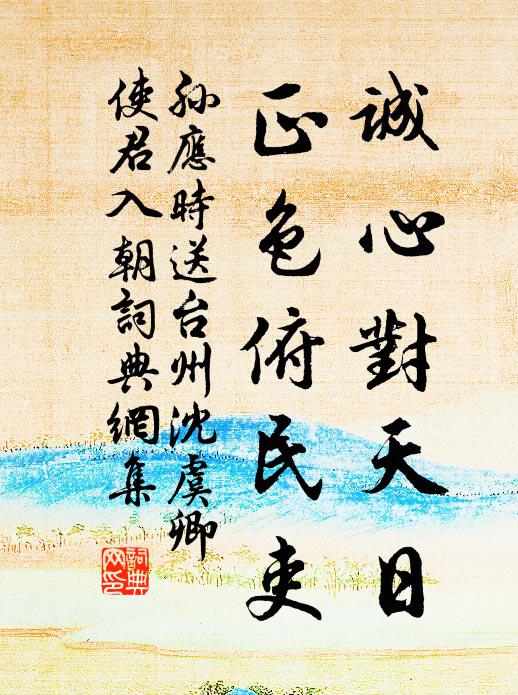 誠心對天日
正色俯民吏
孫應時送台州沈虞卿
使君入朝詞典網集
詞典
网印